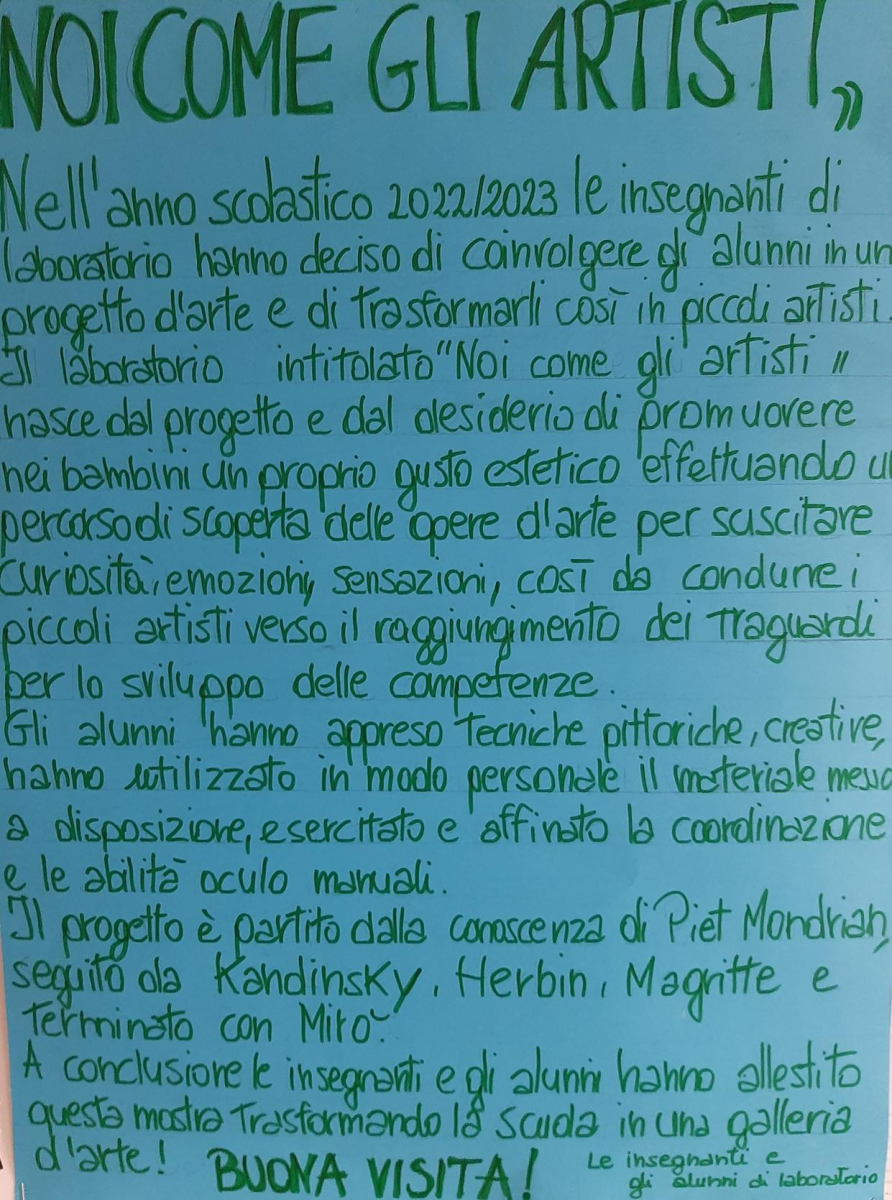 NOI COME GLI ARTISTI,,
Nell'anno scolastico 2022/2023 le insegnanti di
laboratorio hanno deciso di coinvolgere gli alunni in un
progetto d'arte e di trasformarli così in piccoli artisti.
Il laboratorio intitolato "Noi come gli artisti"
nasce dal progetto e dal desiderio di promuovere
nei bambini un proprio gusto estetico effettuando u
percorso di scoperta delle opere d'arte per suscitare
curiosità, emozioni, sensazioni, così da condurre i
piccoli artisti verso il raggiungimento dei traguardi
per lo sviluppo delle competenze.
Gli alunni hanno appreso tecniche pittoriche, creative,
hanno utilizzato in modo personale il materiale messo
a disposizione, esercitato e affinato la coordinazione
e le abilità oculo manuali.
Il progetto è partito dalla conoscenza di Piet Mondrian,
seguito da Kandinsky, Herbin, Magritte e
terminato con Mirò.
A conclusione le insegnanti e gli alunni hanno allestito
questa mostra trasformando la scuola in una galleria
d'arte! BUONA VISITA!
Le insegnanti e
gli alunni di laboratorio